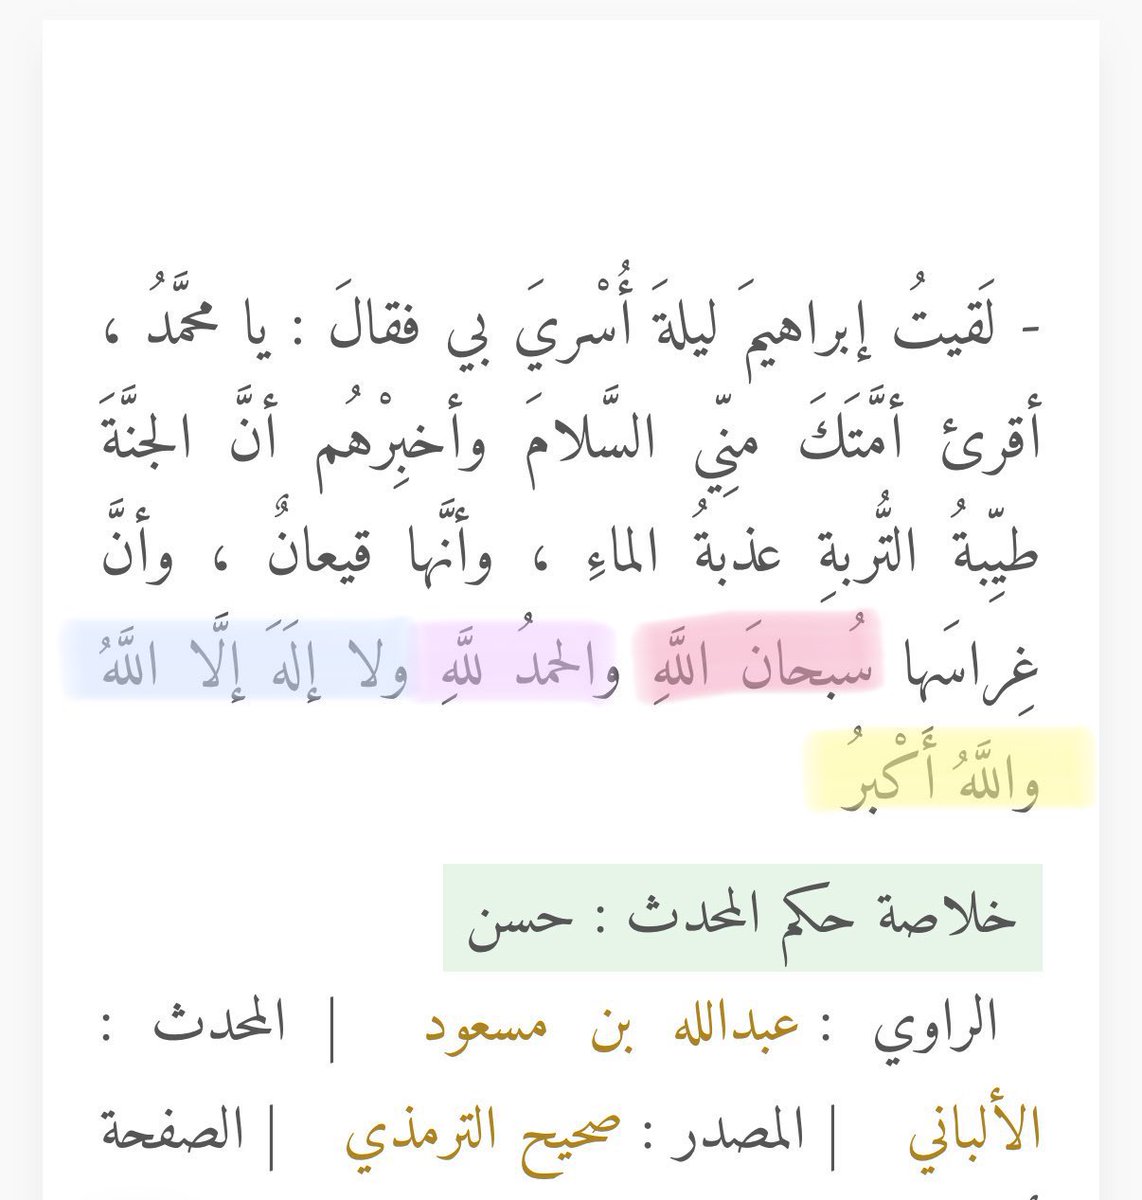 - لَقيتُ إبراهيمَ ليلةَ أُسْريَ بي فقالَ : يا محمَّدُ ،
أقرئ أمَّتَكَ منِّي السَّلامَ وأخبِرْهُم أنَّ الجنَّةَ
طيِّبةُ التُّربةِ عذبةُ الماءِ ، وأنَّها قيعانٌ ، وأنَّ
غِراسَها سُبحانَ اللَّهِ والحمدُ للَّهِ ولا إلَهَ إلَّا اللَّهُ
واللَّهُ أَكْبرُ
خلاصة حكم المحدث : حسن
الراوي : عبدالله بن مسعود | المحدث :
الألباني | المصدر : صحيح الترمذي | الصفحة